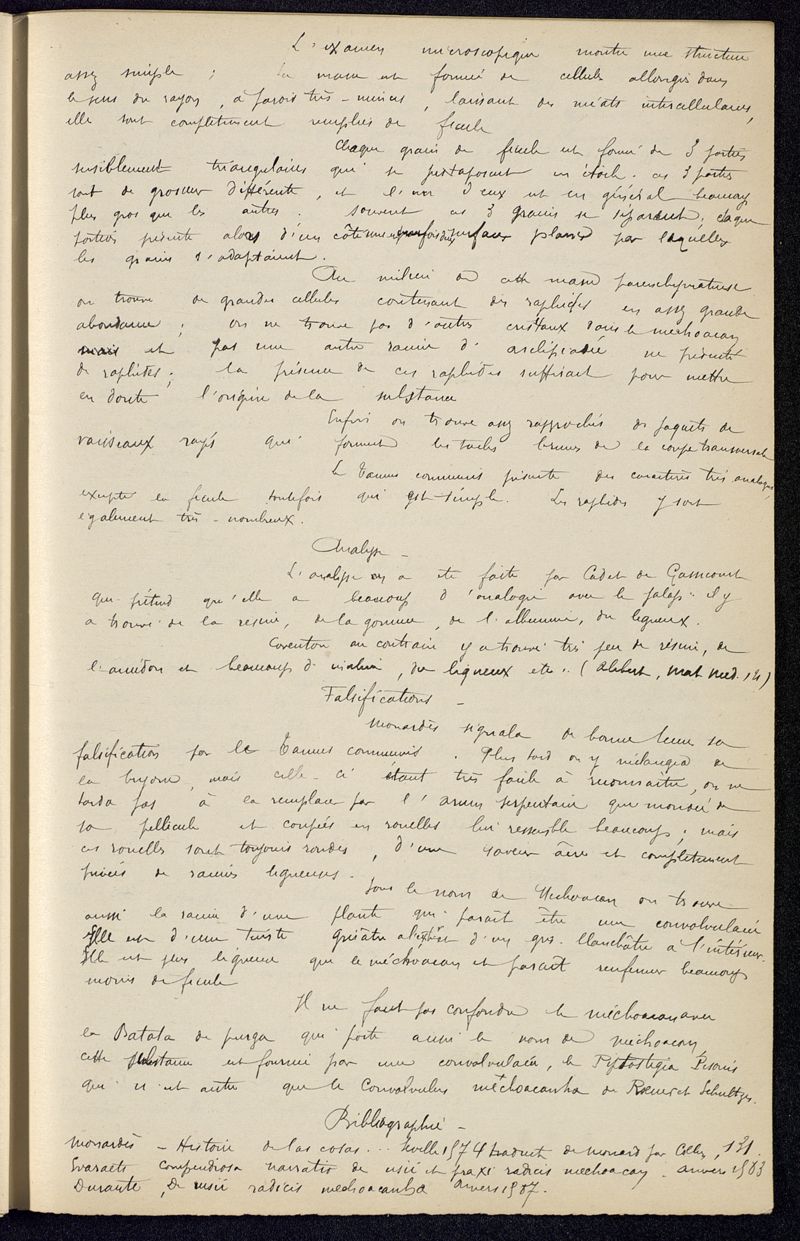 L'examen microscopique montre une structure
assez simple ; la masse est formée de cellules allongées dans
le sens du rayon, à parois très-minces, laissant des méats intercellulaires,
elle sont complètement remplies de fécule
Chaque grain de fécule est formé de 3 parties
sensiblement triangulaires qui se juxtaposent en étoile. ces 3 parties
sont de grosseur différente, et l'une d'eux est en général beaucoup
plus gros que les autres. Souvent ces 3 grains se séparent; chaque
portion présente alors d'un côté une surfaces planes par laquelles
les grains s'adaptaient.
Au milieu de cette masse parenchymateuse
on trouve de grandes cellules contenant des raphides en assez grande
abondance ; on ne trouve pas d'autres cristaux dans le mechoacan
mais et pas une autre racine d'asclépiadée ne présente
de raphides ; la présence de ces raphides suffisait pour mettre
en doute l'origine de la substance
Enfin on trouve assez rapprochés des paquets de
vaisseaux rayés qui forment les taches brunes de la coupe transversale
Le Tamus communis présente des caractères très analogues,
excepté la fécule toutefois qui est simple. Les raphides y sont
également très-nombreux.
Analyse -
L'analyse en a été faite par Cadet de Gassicourt
qui prétend qu'elle a beaucoup d'analogie avec le jalap. il y
a trouvé de la résine, de la gomme, de l'albumine, du ligneux.
Caventou au contraire y a trouvé très peu de résine, de
l'amidon et beaucoup d' , du ligneux etc. (Alibert, mat. med. )
Falsifications -
Monardès signala de bonne heure sa
falsification par le Tamus communis. Plus tard on y mélangea de
la bryone, mais celle-ci étant très facile à reconnaître, on ne
tarda pas à la remplacer par l'arum serpentaire que mondée de
sa pellicule et coupées en rouelles lui ressemble beaucoup ; mais
ces rouelles sont toujours rondes, d'une saveur âcre et complètement
privées de racines ligneuses.
Sous le nom de Mechoacan on trouve
aussi la racine d'une plante qui paraît être une convolvulacée
Elle est d'une teinte grisâtre à l'extérieur d'un gris-blanchâtre à l'intérieur.
Elle est plus ligneuse que le méchoacan et paraît renfermer beaucoup
moins de fécule
Il ne faut pas confondre le méchoacan avec
la Batata de purga qui porte aussi le nom de mechoacan
cette substance est fournie par une convolvulacée, le Pisonis
qui n'est autre que le Convolvulus méchoacanha de Rœmer et Schultzes.
Bibliographie -
Monardès - Histoire de las cosas... Seville 1574 traduct. de monard par Collin, 131.
compendiosa narratio de usu et praxi radicis mechoacan. anvers 1563
Durante, De usu radicis mechoacanha Anvers 1587.